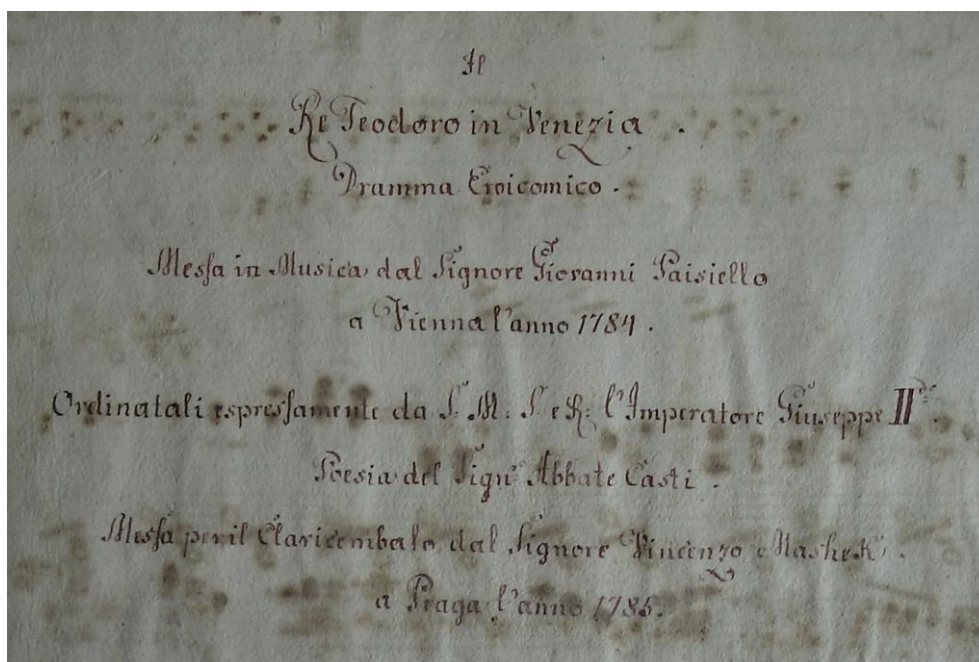 Il
Re Teodoro in Venezia .
Dramma Eroicomico .
Messa in Musica dal Signore Giovanni Paisiello
a Vienna l'anno 1784 .
Ordinatali espressamente da S: M: I: e R: l'Imperatore Giuseppe II:do .
Poesia del Signr Abbate Casti .
Messa per il Clavicembalo dal Signore Vincenzo Mashek .
a Praga l'anno 1785.